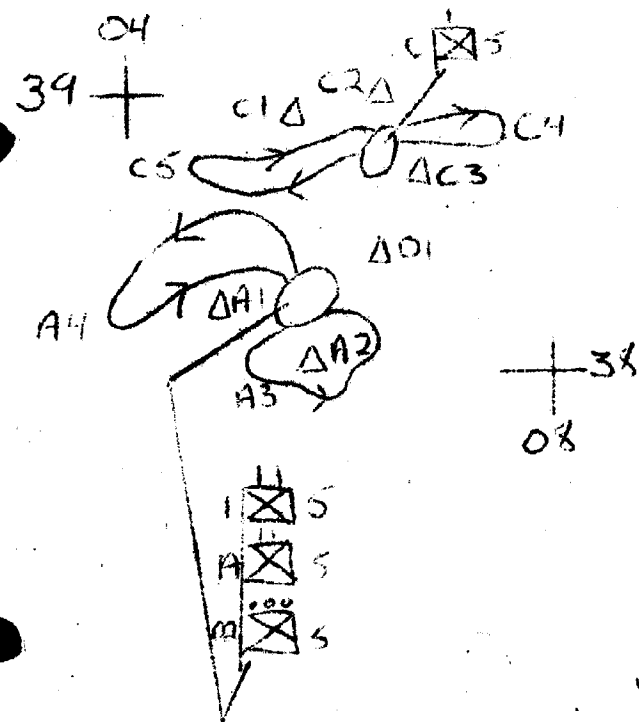 04
39
C 5
C1 Δ
C2 Δ
C4
C5
Δ C3
Δ 01
A4
Δ A1
Δ A2
A3
38
08
1 5
A 5
m 5